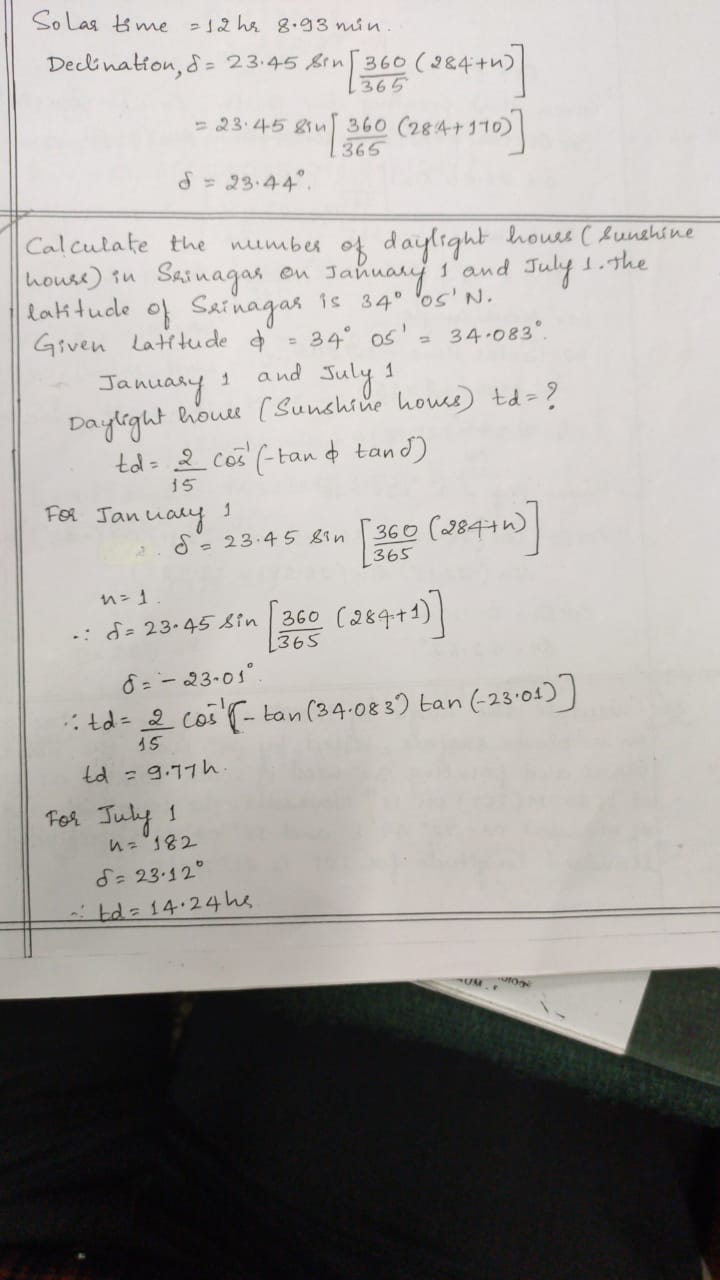 Solar time = 12 hr 8.93 min.
Declination, δ = 23.45 sin [360/365 (284+n)]
= 23.45 sin [360/365 (284+170)]
δ = 23.44°.
Calculate the number of daylight hours (Sunshine
hours) in Srinagar on January 1 and July 1. The
latitude of Srinagar is 34° 05' N.
Given Latitude ϕ = 34° 05' = 34.083°.
January 1 and July 1
Daylight hours (Sunshine hours) td = ?
td = 2/15 cos⁻¹ (-tan ϕ tan δ)
For January 1
∴ δ = 23.45 sin [360/365 (284+n)]
n = 1.
∴ δ = 23.45 sin [360/365 (284+1)]
δ = - 23.01°.
∴ td = 2/15 cos⁻¹ [- tan (34.083°) tan (-23.01)]
td = 9.77 h.
For July 1
n = 182
δ = 23.12°
∴ td = 14.24 hr